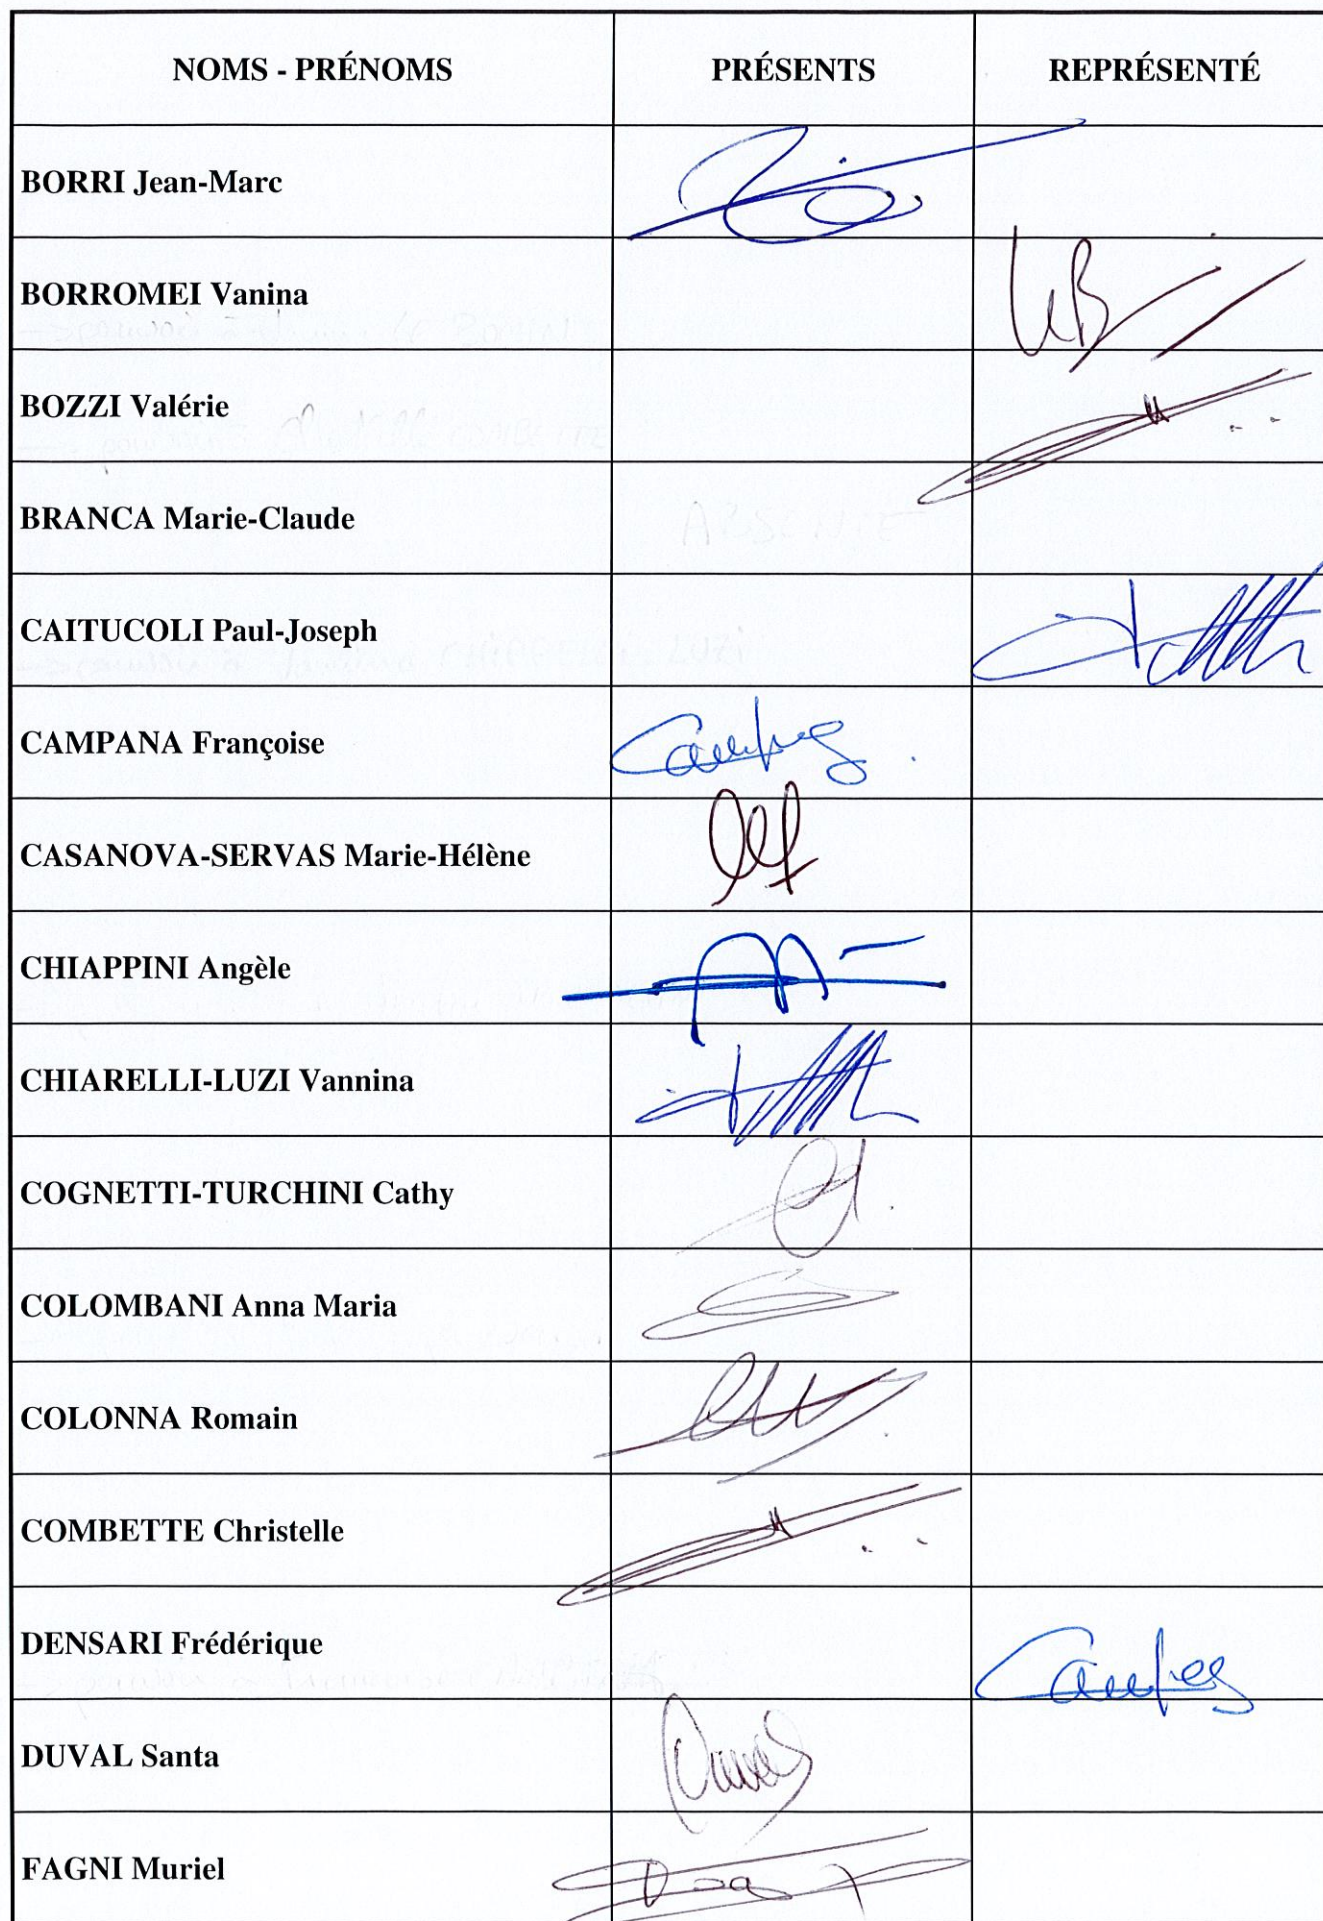 NOMS - PRÉNOMS PRÉSENTS REPRÉSENTÉ
BORRI Jean-Marc
BORROMEI Vanina
BOZZI Valérie
BRANCA Marie-Claude ABSENTE
CAITUCOLI Paul-Joseph
CAMPANA Françoise
CASANOVA-SERVAS Marie-Hélène
CHIAPPINI Angèle
CHIARELLI-LUZI Vannina
COGNETTI-TURCHINI Cathy
COLOMBANI Anna Maria
COLONNA Romain
COMBETTE Christelle
DENSARI Frédérique
DUVAL Santa
FAGNI Muriel